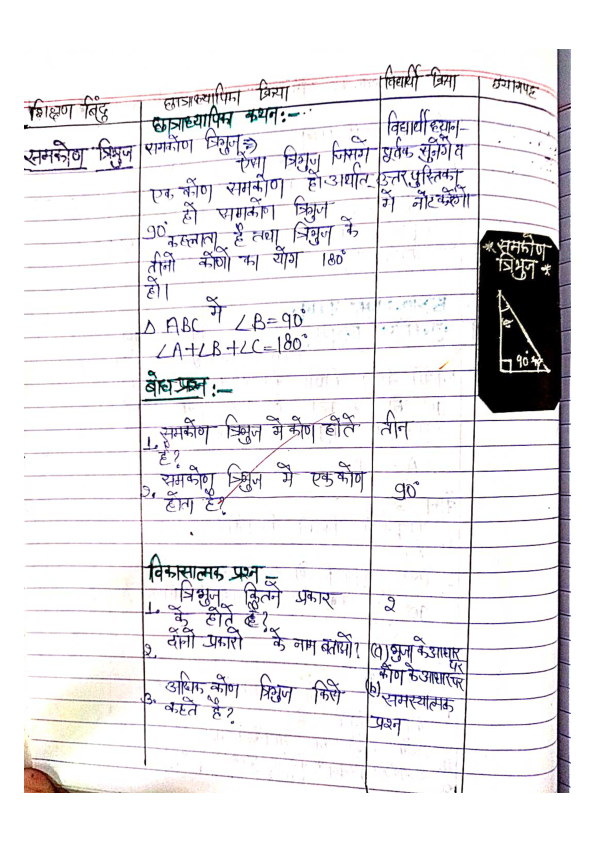 शिक्षण बिंदु
छात्राध्यापिका क्रिया
विद्यार्थी क्रिया
छात्राध्यापिका कथन:-
समकोण त्रिभुज
समकोण त्रिभुज ⇒
ऐसा त्रिभुज जिसमें
एक कोण समकोण हो अर्थात
90° हो समकोण त्रिभुज
कहलाता है तथा त्रिभुज के
तीनों कोणों का योग 180°
हो।
Δ ABC में ∠B=90°
∠A+∠B+∠C=180°
विद्यार्थी ध्यान-
पूर्वक सुनेंगे व
उत्तर पुस्तिका
में नोट करेंगे।
*समकोण
त्रिभुज*
90°
बोध प्रश्न :-
1. समकोण त्रिभुज में कोण होते
है?
तीन
2. समकोण त्रिभुज में एक कोण
होता है?
90°
विकासात्मक प्रश्न -
1. त्रिभुज कितने प्रकार
के होते है?
2
2. दोनों प्रकारों के नाम बताओ?
(a) भुजा के आधार
पर
(b) कोण के आधार पर
3. अधिक कोण त्रिभुज किसे
कहते है?
समस्यात्मक
प्रश्न